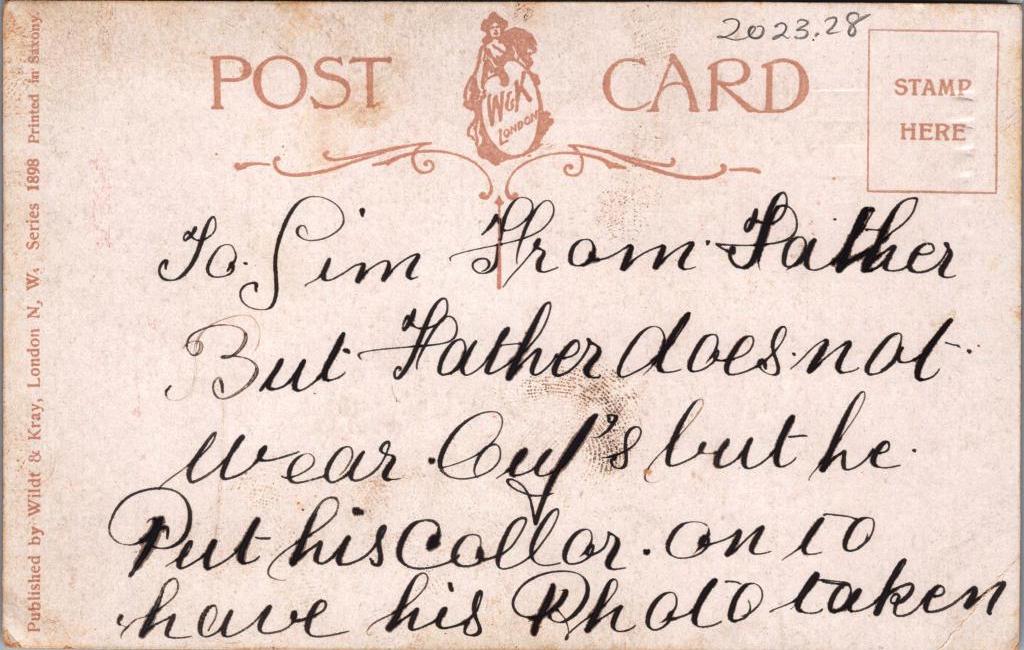 2023.28
POST CARD
W&K
LONDON
STAMP
HERE
To Sim From Father
But Father does not
wear Cuf's but he
Put his Collar on to
have his Photo taken
Published by Wildt & Kray, London N, W. Series 1898 Printed in Saxony.